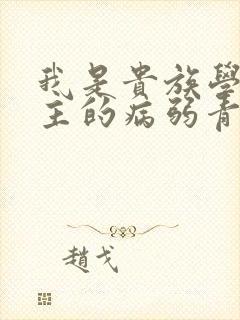 我是貴族學
主的病弱青
趙戈